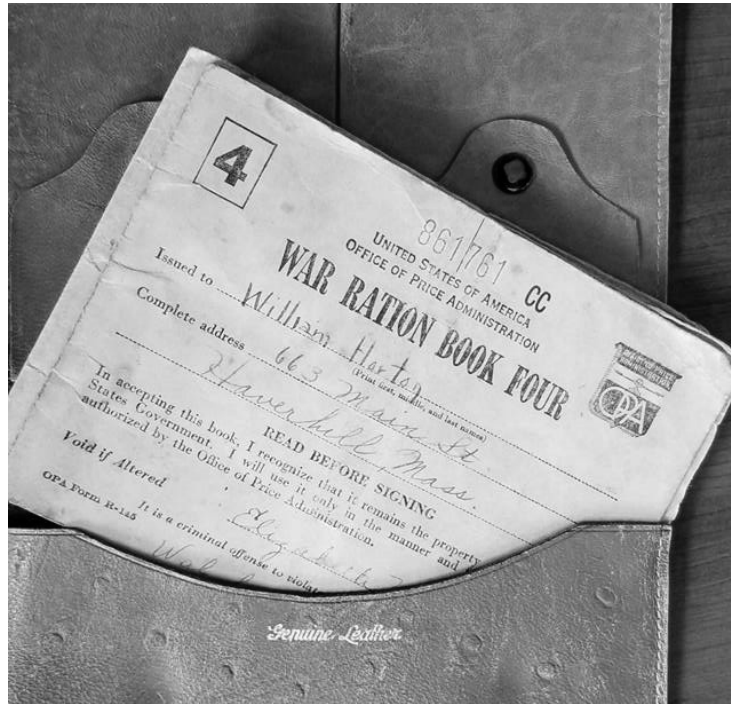 4
861761 CC
UNITED STATES OF AMERICA
OFFICE OF PRICE ADMINISTRATION
WAR RATION BOOK FOUR
OPA
Issued to William
(Print first, middle, and last names)
Complete address 663 Main St
Haverhill, Mass.
READ BEFORE SIGNING
In accepting this book, I recognize that it remains the property
States Government. I will use it only in the manner and
authorized by the Office of Price Administration.
Void if Altered
OPA Form R-145
It is a criminal offense to violate
Genuine Leather